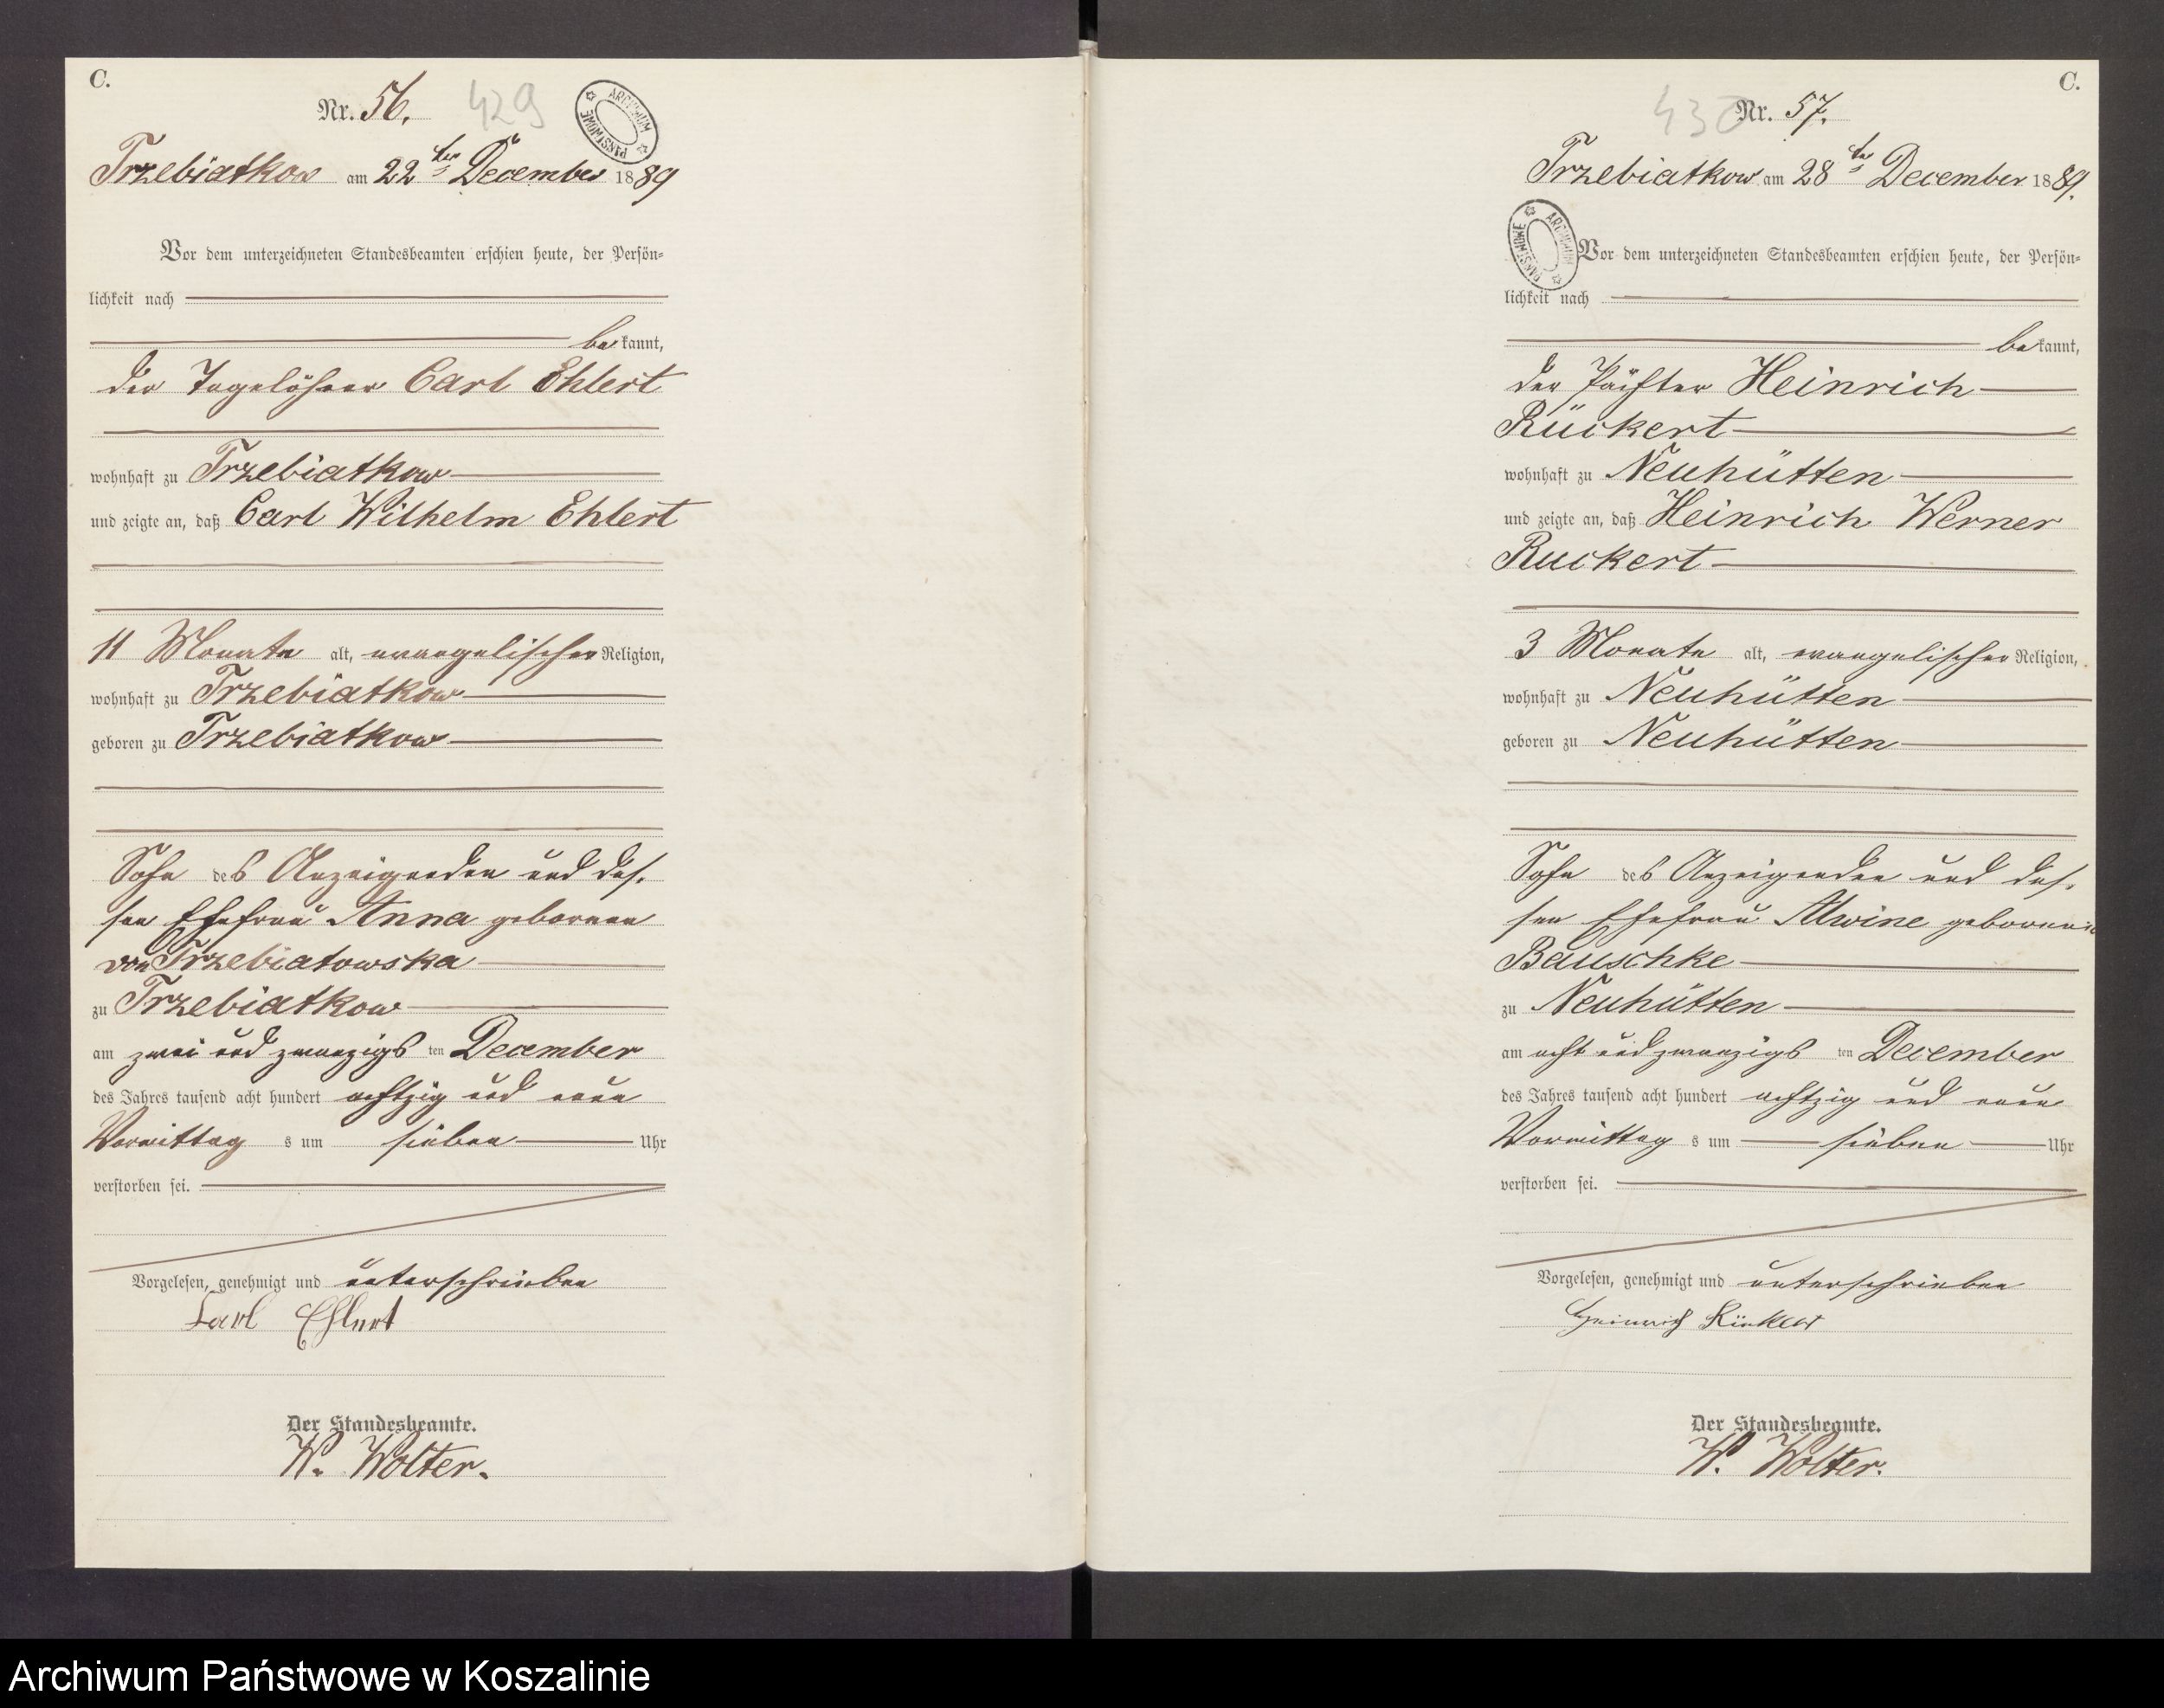 C.
Nr. 56.
429
ARCHIWUM PAŃSTWOWE
Trzebiatkow am 22ten December 1889
Vor dem unterzeichneten Standesbeamten erschien heute, der Persön-
lichkeit nach
bekannt,
der Tagelöhner Carl Ehlert
wohnhaft zu Trzebiatkow
und zeigte an, daß Carl Wilhelm Ehlert
11 Monate alt, evangelischer Religion,
wohnhaft zu Trzebiatkow
geboren zu Trzebiatkow
Sohn des Anzeigenden und des-
sen Ehefrau Anna geborenen
von Trzebiatowska
zu Trzebiatkow
am zwei und zwanzigsten December
des Jahres tausend acht hundert achtzig und neun
Vormittags um sieben Uhr
verstorben sei.
Vorgelesen, genehmigt und unterschrieben
Carl Ehlert
Der Standesbeamte.
W. Wolter.
C.
430
Nr. 57.
Trzebiatkow am 28ten December 1889.
ARCHIWUM PAŃSTWOWE
Vor dem unterzeichneten Standesbeamten erschien heute, der Persön-
lichkeit nach
bekannt,
der Pächter Heinrich
Rückert
wohnhaft zu Neuhütten
und zeigte an, daß Heinrich Werner
Ruckert
3 Monate alt, evangelischer Religion,
wohnhaft zu Neuhütten
geboren zu Neuhütten
Sohn des Anzeigenden und des-
sen Ehefrau Alwine geborenen
Bauschke
zu Neuhütten
am acht und zwanzigsten December
des Jahres tausend acht hundert achtzig und neun
Vormittags um sieben Uhr
verstorben sei.
Vorgelesen, genehmigt und unterschrieben
Heinrich Rückert
Der Standesbeamte.
W. Wolter.
Archiwum Państwowe w Koszalinie